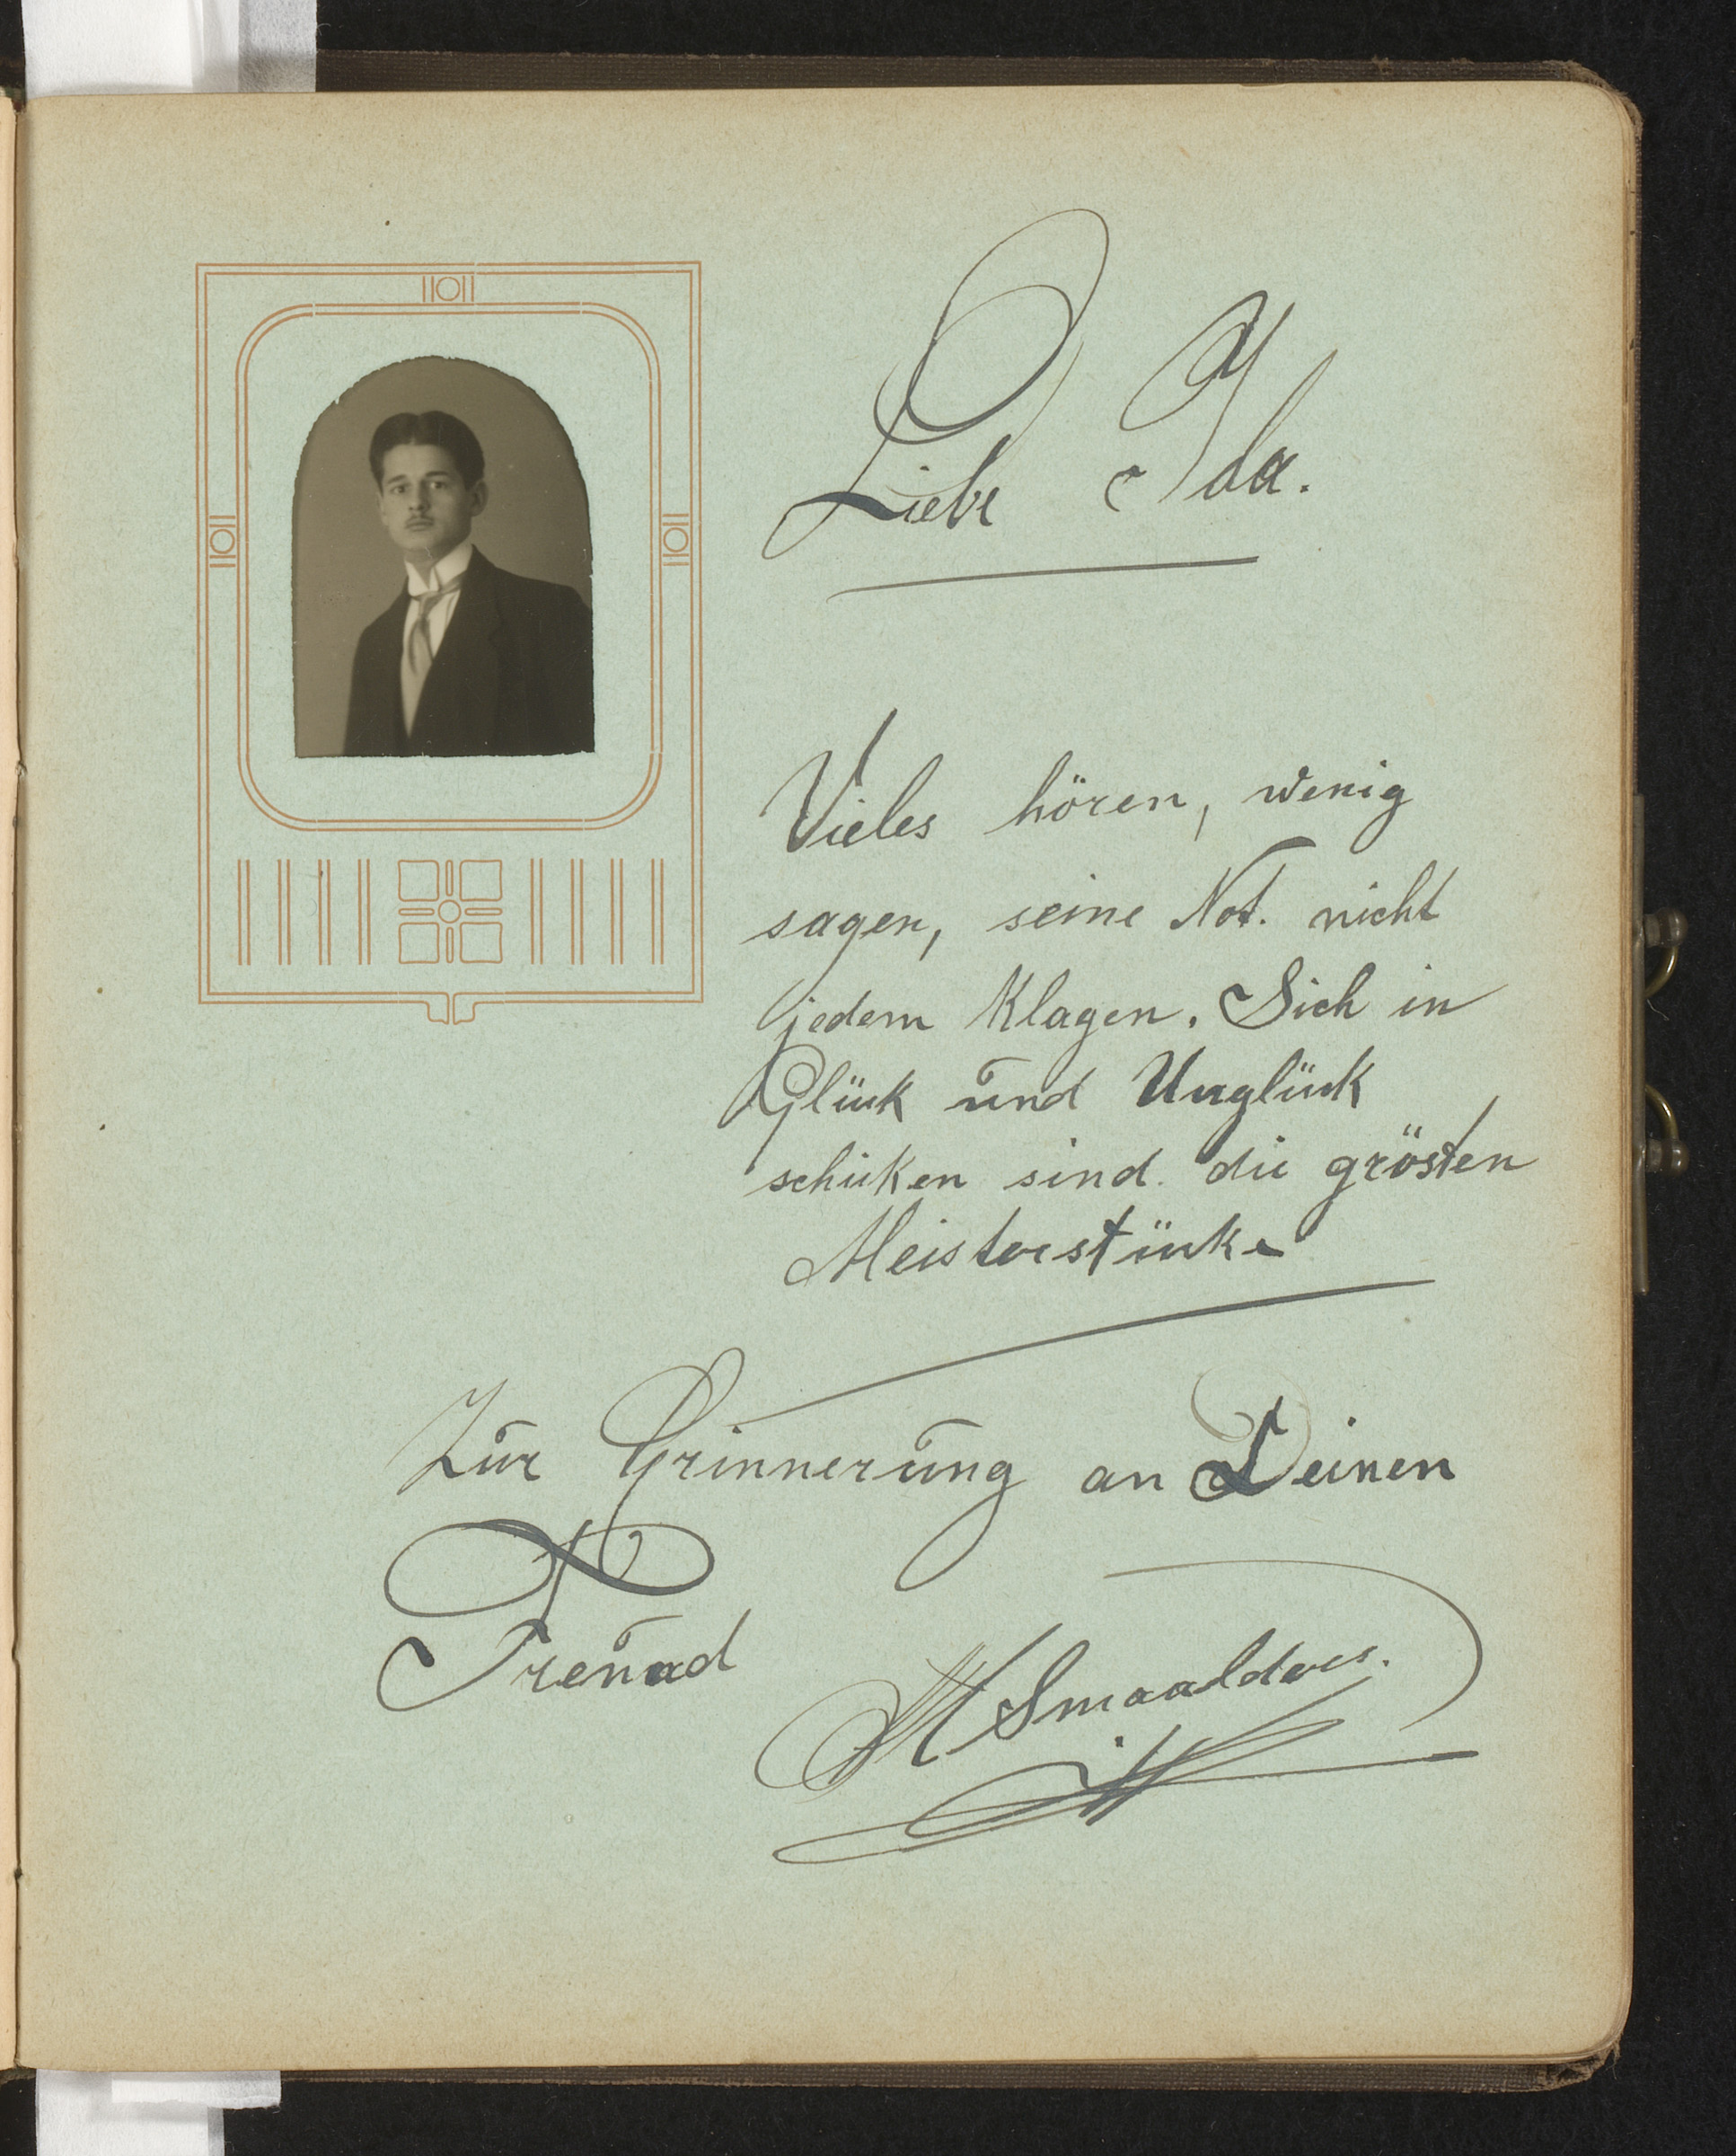 Liebe Ida.
Vieles hören, wenig
sagen, seine Not. nicht
jedem Klagen. Sich in
Glük und Unglük
schiken sind die grösten
Meisterstüke
Zur Erinnerung an Deinen
Freund
M Smaalders.